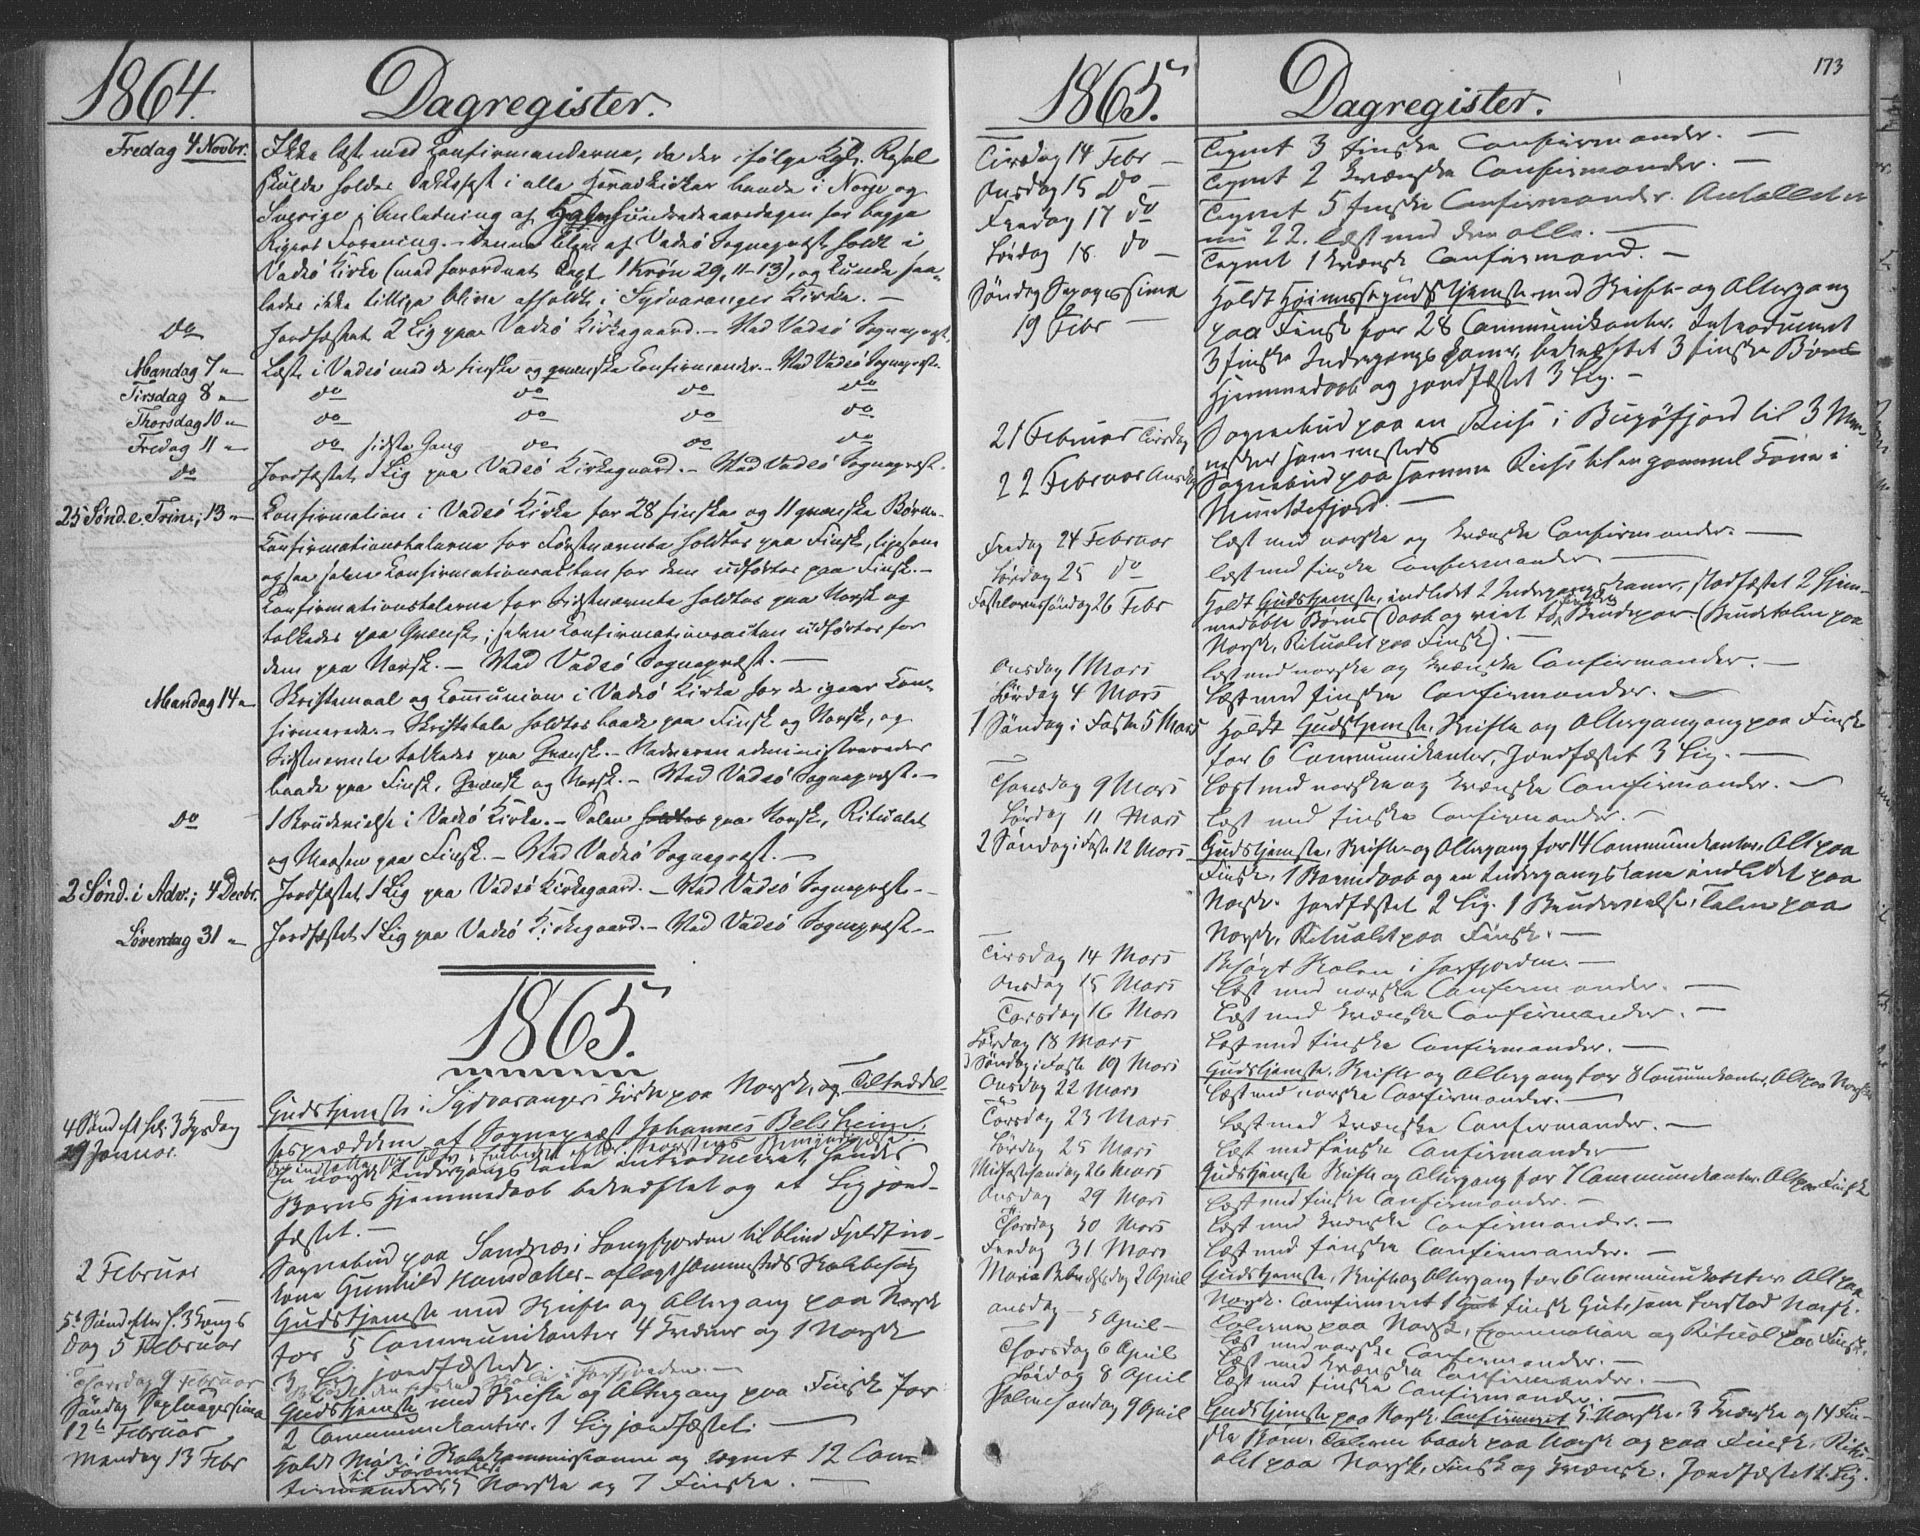 1864. Dagregister.
Fredag 4 Novbr. Ikke læst med Confirmanderne, da der ifølge Kgl. Resol
skulde holdes Takkefest i alle Hovedkirker baade i Norge og
Sverige i Anledning af Halvhundredaarsdagen for begge
Rigers Forening. – Denne blev af Vadsö Sognepræst holdt i
Vadsö Kirke (med forordnet Text 1 Krön 29, 11-13), og kunde saa-
ledes ikke tillige blive afholdt i Sydvaranger Kirke. –
do Jordfæstet 2 Lig paa Vadsö Kirkegaard. – Ved Vadsö Sognepræst.
Mandag 7 " Læst i Vadsö med de finske og qvænske Confirmander. – Ved Vadsö Sognepræst.
Tirsdag 8 " do do do do
Thorsdag 10 " do do do do
Fredag 11 " do sidste Gang do do do
do Jordfæstet 1 Lig paa Vadsö Kirkegaard. – Ved Vadsö Sognepræst.
25 Sönd. e. Trin., 13 " Confirmation i Vadsö Kirke for 28 finske og 11 qvænske Børn.
Confirmationstalerne for Førstnævnte holdtes paa Finsk, ligesom
ogsaa selve Confirmationsacten for dem udførtes paa Finsk. –
Confirmationstalerne for Sidstnævnte holdtes paa Norsk og
tolkedes paa Qvænsk; selve Confirmationsacten udførtes for
dem paa Norsk. – Ved Vadsö Sognepræst. –
Mandag 14 " Skriftemaal og Communion i Vadsö Kirke for de igaar Con-
firmerede. – Skriftetale holdtes baade paa Finsk og Norsk, og
Sidstnævnte tolkedes paa Qvænsk. – Nadveren administreredes
baade paa Finsk, Qvænsk og Norsk. – Ved Vadsö Sognepræst. –
do 1 Brudevielse i Vadsö Kirke. – Talen holdtes paa Norsk, Ritualet
og Messen paa Finsk. – Ved Vadsö Sognepræst. –
2 Sönd. i Adv.; 4 Decbr. Jordfæstet 1 Lig paa Vadsö Kirkegaard. – Ved Vadsö Sognepræst. –
Löverdag 31 " Jordfæstet 1 Lig paa Vadsö Kirkegaard. – Ved Vadsö Sognepræst. –
1865.
4 Sönd eft hel. 3 Kgsdag Gudstjeneste i Sydvarangers Kirke paa Norsk, og Tiltrædel-
29 Januar. sespræken af Sognepræst Johannes Belsheim.
En norsk Indergangskone introduceret, hendes
Barns Hjemmedaab bekræftet og et Lig jord-
fæstet. –
2 Februar Sognebud paa Sandnes i Langfjorden til blind Fjeldfin-
kone Gunhild Hansdatter – aflagt sammesteds Skolebesøg
5te Sönd efter H. 3 Kongs Gudstjeneste med Skrifte og Altergang paa Norsk
dag 5 Februar for 5 Communikanter 4 Kvæner og 1 Norsk
3 Lig jordfæstede.
Thorsdag 9 Februar Besøgt den finske Skole i Jarfjorden. –
Söndag Septuagesima Gudstjeneste med Skrifte og Altergang paa Finsk for
12te Februar 2 Communikanter. 1 Lig jordfæstet. –
Mandag 13 Febr Holdt Møde i Skolekommissionen og tegnet 12 Con-
firmander, Norske og 7 Finske. –
173
1865. Dagregister.
Tirsdag 14 Febr – Tegnet 3 finske Confirmander. –
Onsdag 15 do – Tegnet 2 kvænske Confirmander. –
Fredag 17 do Tegnet 5 finske Confirmander. Antallet er
nu 22. læst med dem alle. –
Lördag 18. do – Tegnet 1 kvænsk Confirmand. –
Söndag Sexagesima Holdt Høimessegudstjeneste med Skrifte og Altergang
19 Febr – paa Finsk for 28 Communikanter. Introduceret
3 finske Indergangskoner, bekræftet 3 finske Børns
Hjemmedaab og jordfæstet 3 Lig. –
21 Februar Tirsdag Sognebud paa en Reise i Bugöfjord til 3 Men-
nesker sammesteds
22 Februar Onsdag Sognebud paa samme Reise til en gammel Kone i
Munkefjord. –
Fredag 24 Februar læst med norske og kvænske Confirmander. –
Lördag 25 do læst med finske Confirmander –
Fastelavnssöndag 26 Febr Holdt Gudstjeneste, indledet 2 Indergangskoner, stadfæstet 2 Hjem-
medøbte Børns Daab og viet to finske Brudepar. (Brudetalen paa
Norsk, Ritualet paa Finsk). –
Onsdag 1 Mars læst med norske og kvænske Confirmander. –
Lördag 4 Mars Læst med finske Confirmander. –
1 Söndag i Faste 5 Mars Holdt Gudstjeneste, Skrifte og Altergang paa Finsk
for 6 Communikanter, Jordfæstet 3 Lig. –
Thorsdag 9 Mars Læst med norske og kvænske Confirmander. –
Lördag 11 Mars Læst med finske Confirmander. –
2 Söndag i Faste 12 Mars Gudstjeneste, Skrifte og Altergang for 14 Communikanter, Alt paa
Finsk, 1 Barnedaab og en Indergangskone indledet paa
Norsk. Jordfæstet 2 Lig. 1 Brudevielse, Talen paa
Norsk, Ritualet paa Finsk. –
Tirsdag 14 Mars Besøgt Skolen i Jarfjorden –
Onsdag 15 Mars Læst med norske Confirmander. –
Torsdag 16 Mars Læst med kvænske Confirmander. –
Lördag 18 Mars Læst med finske Confirmander. –
3 Söndag i Faste 19 Mars Gudstjeneste, Skrifte og Altergang for 8 Communikanter, Alt paa Norsk
Onsdag 22 Mars Læst med norske Confirmander. –
Torsdag 23 Mars Læst med kvænske Confirmander. –
Lördag 25 Mars Læst med finske Confirmander –
Midfastesöndag 26 Mars Gudstjeneste Skrifte og Altergang for 7 Communikanter. Alt paa Finsk
Onsdag 29 Mars Læst med finske Confirmander. –
Thorsdag 30 Mars Læst med kvænske Confirmander. –
Fredag 31 Mars Læst med finske Confirmander. –
Maria Bebudelsesdag 2 April Gudstjeneste, Skrifte og Altergang for 6 Communikanter Alt paa
Norsk. Confirmeret 1 finsk Gut, som forstod Norsk.
Talerne paa Norsk, Examination og Ritual paa Finsk.
Onsdag – 5 April – Læst med norske Confirmander. –
Thorsdag 6 April Læst med kvænske Confirmander. –
Lördag 8 April Læst med finske Confirmander. –
Palmesöndag 9 April Gudstjeneste paa Norsk. Confirmeret 5 Norske, 3 Kvænske og 14 Fin-
ske Børn. Talerne baade paa Norsk og paa Finsk. Ritu-
alet paa Norsk, Finsk og Kvænsk. Jordfæstet 1 Lig.